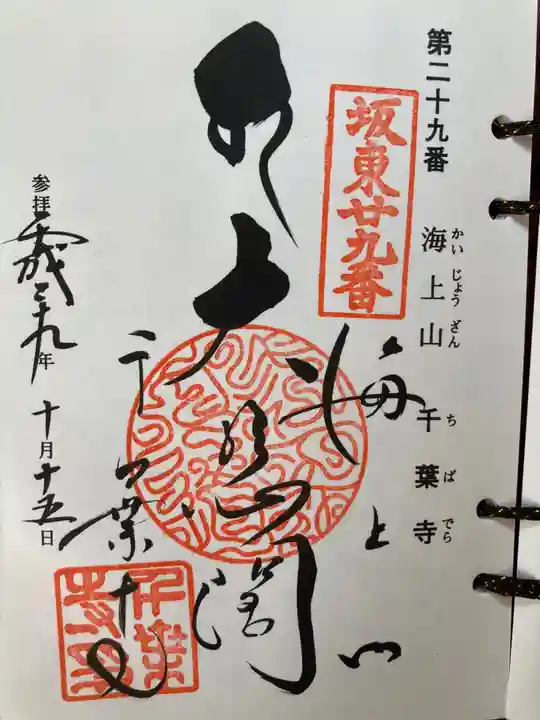 第二十九番 海上山 千葉寺
かいじょうざん ちばでら
坂東廿九番
海上山
大
閣
千葉寺
参拝平成二十九年十月十五日